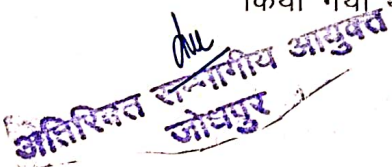 किया गया
अतिरिक्त सम्भागीय आयुक्त
जोधपुर